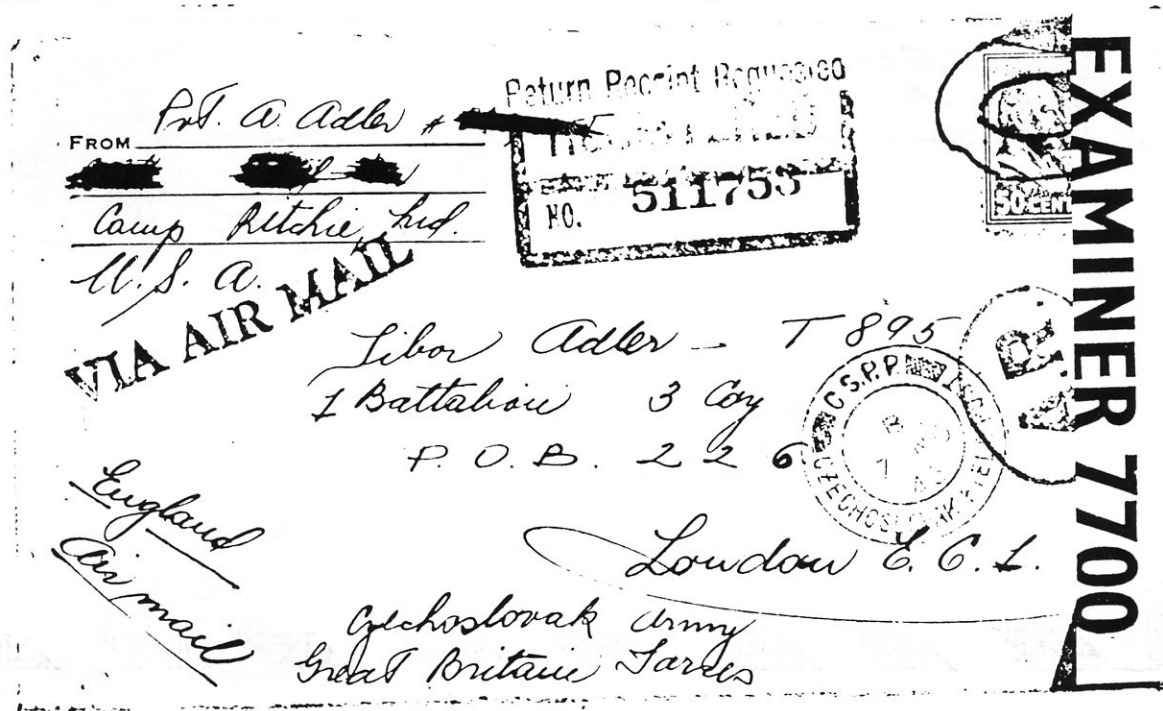 FROM Pvt. A. Adler #
Camp Ritchie, Md.
U.S.A.
VIA AIR MAIL
Return Receipt Requested
NO. 511753
50 CENT
EXAMINER 7700
Tibor Adler - T 895
1 Battalion 3 Coy
P.O.B. 226
C.S.P.P.
London E.C.1.
England
Air mail
Czechoslovak Army
Great Britain